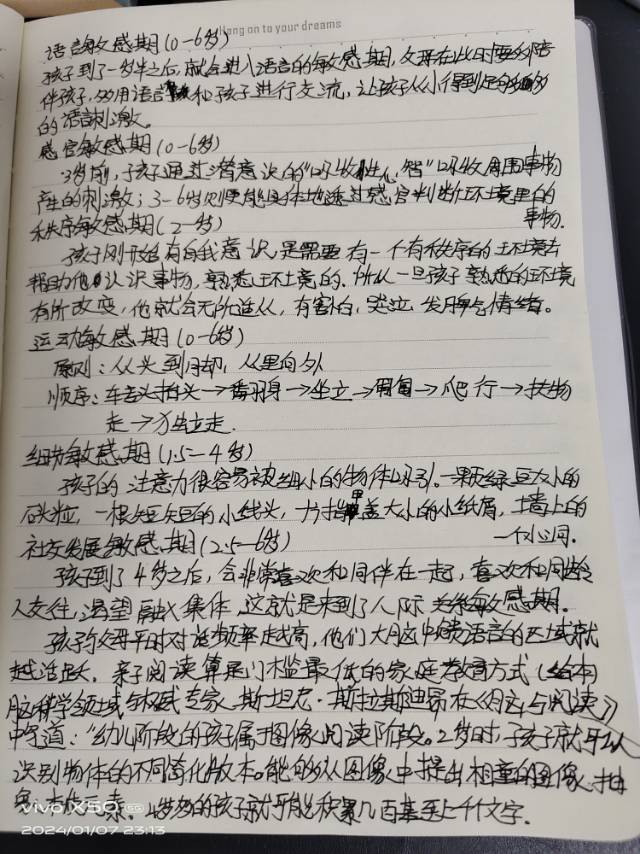 Hang on to your dreams
语言敏感期(0-6岁)
孩子到了一岁半之后,就会进入语言的敏感期,父母在此时要多陪
伴孩子,多用语言和孩子进行交流,让孩子从小得到足够多的
的语言刺激。
感官敏感期(0-6岁)
3岁前,孩子通过潜意识的"吸收性心智"吸收周围事物
产生的刺激;3-6岁则更能具体地透过感官判断环境里的
事物.
秩序敏感期(2-岁)
孩子刚开始有自我意识,是需要有一个有秩序的环境去
帮助他认识事物,熟悉环境的.所以一旦孩子熟悉的环境
有所改变,他就会无所适从,有害怕,哭泣,发脾气情绪。
运动敏感期(0-6岁)
原则:从头到脚,从里向外
顺序:抬头→翻身→坐立→匍匐→爬行→扶物
走→独立走.
细节敏感期(1.5-4岁)
孩子的注意力很容易被细小的物体吸引.一颗绿豆大小的
石粒,一根短短的小线头,指甲盖大小的小纸屑,墙上的
一个小洞.
社交发展敏感期(2.5-6岁)
孩子到了4岁之后,会非常喜欢和同伴在一起,喜欢和同龄
人交往,渴望融入集体,这就是来到了人际关系敏感期.
孩子与父母平时对话频率越高,他们大脑中负责语言的区域就
越活跃.亲子阅读算是门槛最低的家庭教育方式(绘本)
脑科学领域权威专家斯坦尼·斯拉斯迪昂在《脑与阅读》
中写道:"幼儿阶段的孩子属于图像阅读阶段。2岁时,孩子就可以
识别物体的不同简化版本。能够从图像中提出相关的图像,抽
象 素.4岁多的孩子就可能积累几百甚至上千个文字.
vivo X50 5G
2024/01/07 23:13